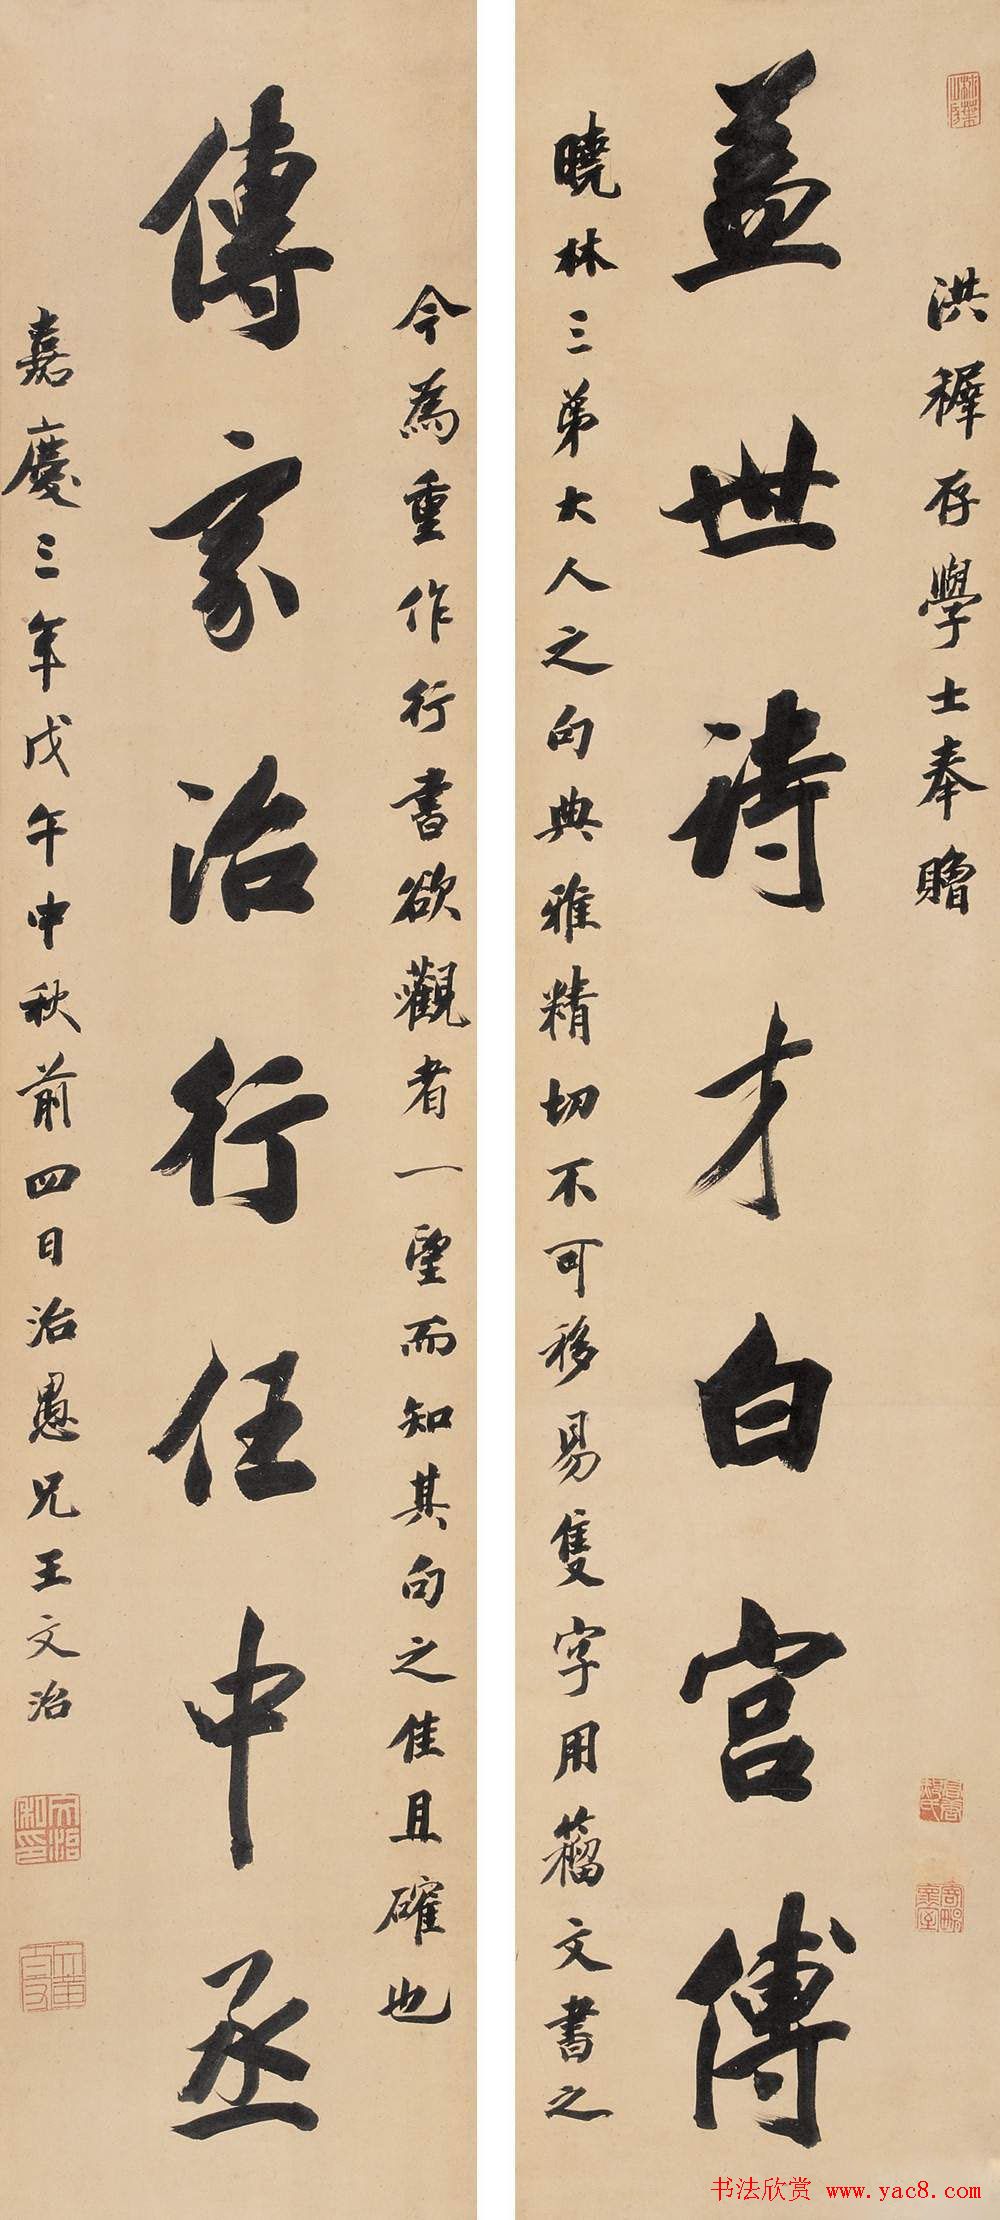 洪穉存學士奉贈
蓋世詩才白宫傅
曉林三弟大人之句典雅精切不可移易隻字用籀文書之
今為重作行書欲觀者一望而知其句之佳且確也
傳家治行任中丞
嘉慶三年戊午中秋前四日治愚兄王文治
书法欣赏 www.yac8.com